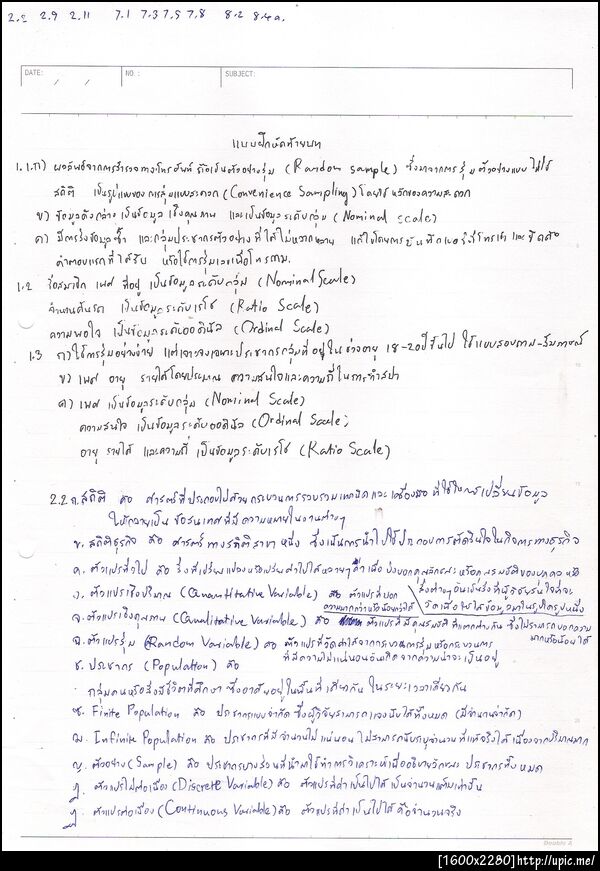 2.2 2.9 2.11 7.1 7.3 7.5 7.8 8.2 8.4 a.
DATE: / / NO.: SUBJECT:
แบบฝึกหัดท้ายบท
1.1 ก) ผลลัพธ์จากการสำรวจทางโทรศัพท์ ถือเป็นตัวอย่างสุ่ม (Random sample) ซึ่งมาจากการสุ่มตัวอย่างแบบไม่ใช้
สถิติ เป็นรูปแบบของการสุ่มแบบสะดวก (Convenience Sampling) โดยใช้หลักของความสะดวก
ข) ข้อมูลดังกล่าว เป็นข้อมูลเชิงคุณภาพ และเป็นข้อมูลระดับกลุ่ม (Nominal scale)
ค) มีการส่งข้อมูลซ้ำ และกลุ่มประชากรตัวอย่างที่ได้ไม่หลากหลาย แก้ไขโดยการบันทึกเบอร์ที่โทรเข้า และยึดถือ
คำตอบแรกที่ได้รับ หรือใช้การสุ่มเลขเพื่อโทรถาม.
1.2 ชื่อสมาชิก เพศ ที่อยู่ เป็นข้อมูลระดับกลุ่ม (Nominal Scale)
จำนวนคันรถ เป็นข้อมูลระดับเรโช (Ratio Scale)
ความพอใจ เป็นข้อมูลระดับออดินัล (Ordinal Scale)
1.3 ก) ใช้การสุ่มอย่างง่าย แต่เจาะจงเฉพาะประชากรกลุ่มที่อยู่ในช่วงอายุ 18-20 ปีขึ้นไป ใช้แบบสอบถาม-สัมภาษณ์
ข) เพศ อายุ รายได้โดยประมาณ ความสนใจและความถี่ในการทำสปา
ค) เพศ เป็นข้อมูลระดับกลุ่ม (Nominal Scale)
ความสนใจ เป็นข้อมูลระดับออดินัล (Ordinal Scale)
อายุ รายได้ และความถี่ เป็นข้อมูลระดับเรโช (Ratio Scale)
2.2 ก. สถิติ คือ ศาสตร์ที่ประกอบไปด้วยกระบวนการรวบรวมเทคนิคและเครื่องมือที่ใช้ในการเปลี่ยนข้อมูล
ให้กลายเป็น ข้อสนเทศที่มีความหมายในงานต่างๆ
ข. สถิติธุรกิจ คือ ศาสตร์ทางสถิติสาขาหนึ่ง ซึ่งเน้นการนำไปใช้ประกอบการตัดสินใจในกิจการทางธุรกิจ
ค. ตัวแปรทั่วไป คือ สิ่งที่เปลี่ยนแปลงหรือแปรค่าไปได้หลายๆค่า เพื่อบ่งบอกคุณลักษณะหรือคุณสมบัติของบุคคล หรือ
สิ่งต่างๆอันเป็นสิ่งที่ผู้วิจัยสนใจที่จะ
ง. ตัวแปรเชิงปริมาณ (Quantitative Variable) คือ ตัวแปรที่บอก
ความมากกว่าหรือน้อยกว่าได้ วัดเพื่อให้ได้ข้อมูลมาในรูปใดรูปหนึ่ง
จ. ตัวแปรเชิงคุณภาพ (Qualitative Variable) คือ ตัวแปรที่มีคุณสมบัติที่แตกต่างกัน ซึ่งไม่สามารถบอกความ
มากหรือน้อยได้
ฉ. ตัวแปรสุ่ม (Random Variable) คือ ตัวแปรที่วัดค่าได้จากกระบวนการสุ่มหรือกระบวนการ
ที่มีความไม่แน่นอนอันเกิดจากความน่าจะเป็นอยู่
ช. ประชากร (Population) คือ
กลุ่มคนหรือสิ่งมีชีวิตที่ศึกษา ซึ่งอาศัยอยู่ในพื้นที่เดียวกัน ในระยะเวลาเดียวกัน
ซ. Finite Population คือ ประชากรแบบจำกัด ซึ่งผู้วิจัยสามารถแจงนับได้ทั้งหมด (มีจำนวนจำกัด)
ฌ. Infinite Population คือ ประชากรที่มีจำนวนไม่แน่นอน ไม่สามารถนับระบุจำนวนที่แท้จริงได้ เนื่องจากปริมาณมาก
ญ. ตัวอย่าง (Sample) คือ ประชากรบางส่วนที่นำมาใช้ทำการวิเคราะห์เพื่ออธิบายลักษณะประชากรทั้งหมด
ฎ. ตัวแปรไม่ต่อเนื่อง (Discrete Variable) คือ ตัวแปรที่ค่าเป็นไปได้ เป็นจำนวนเต็มเท่านั้น
ฏ. ตัวแปรต่อเนื่อง (Continuous Variable) คือ ตัวแปรที่ค่าเป็นไปได้ คือจำนวนจริง
Double A
[1600x2280]http://upic.me/